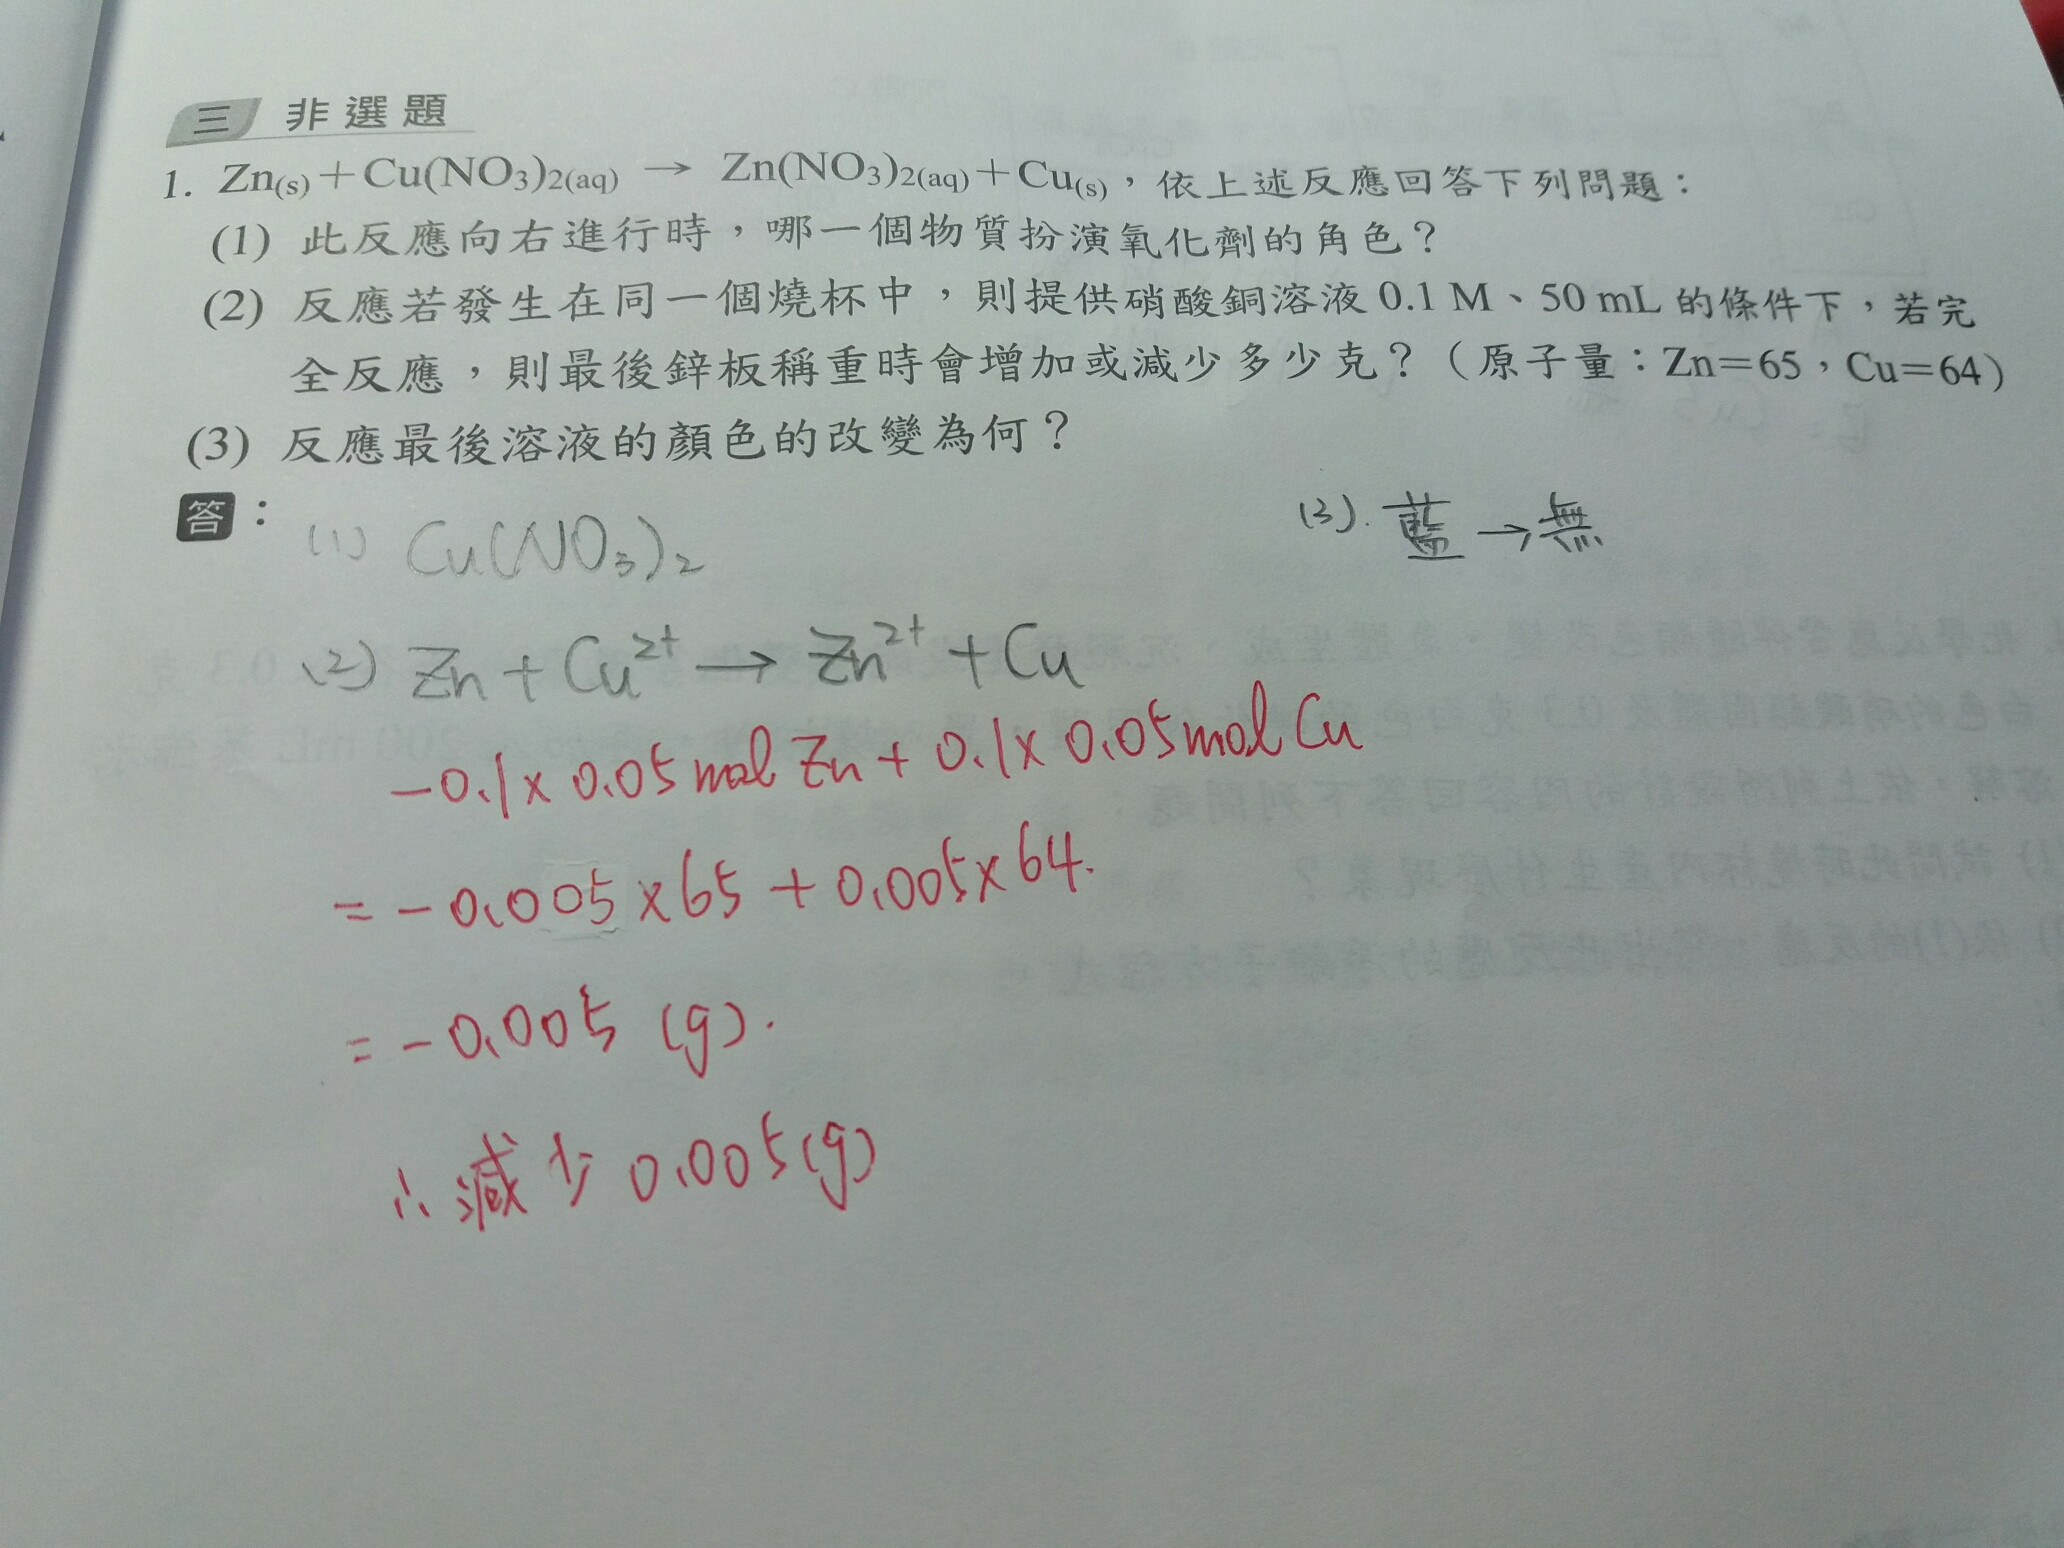 三 非選題
1. Zn(s)＋Cu(NO3)2(aq) → Zn(NO3)2(aq)＋Cu(s)，依上述反應回答下列問題：
(1) 此反應向右進行時，哪一個物質扮演氧化劑的角色？
(2) 反應若發生在同一個燒杯中，則提供硝酸銅溶液 0.1 M、50 mL 的條件下，若完
全反應，則最後鋅板稱重時會增加或減少多少克？（原子量：Zn＝65，Cu＝64）
(3) 反應最後溶液的顏色的改變為何？
答：
(1) Cu(NO3)2
(3). 藍→無
(2) Zn + Cu²⁺ → Zn²⁺ + Cu
-0.1×0.05 mol Zn + 0.1×0.05 mol Cu
= -0.005×65 + 0.005×64.
= -0.005 (g).
∴減少 0.005(g)